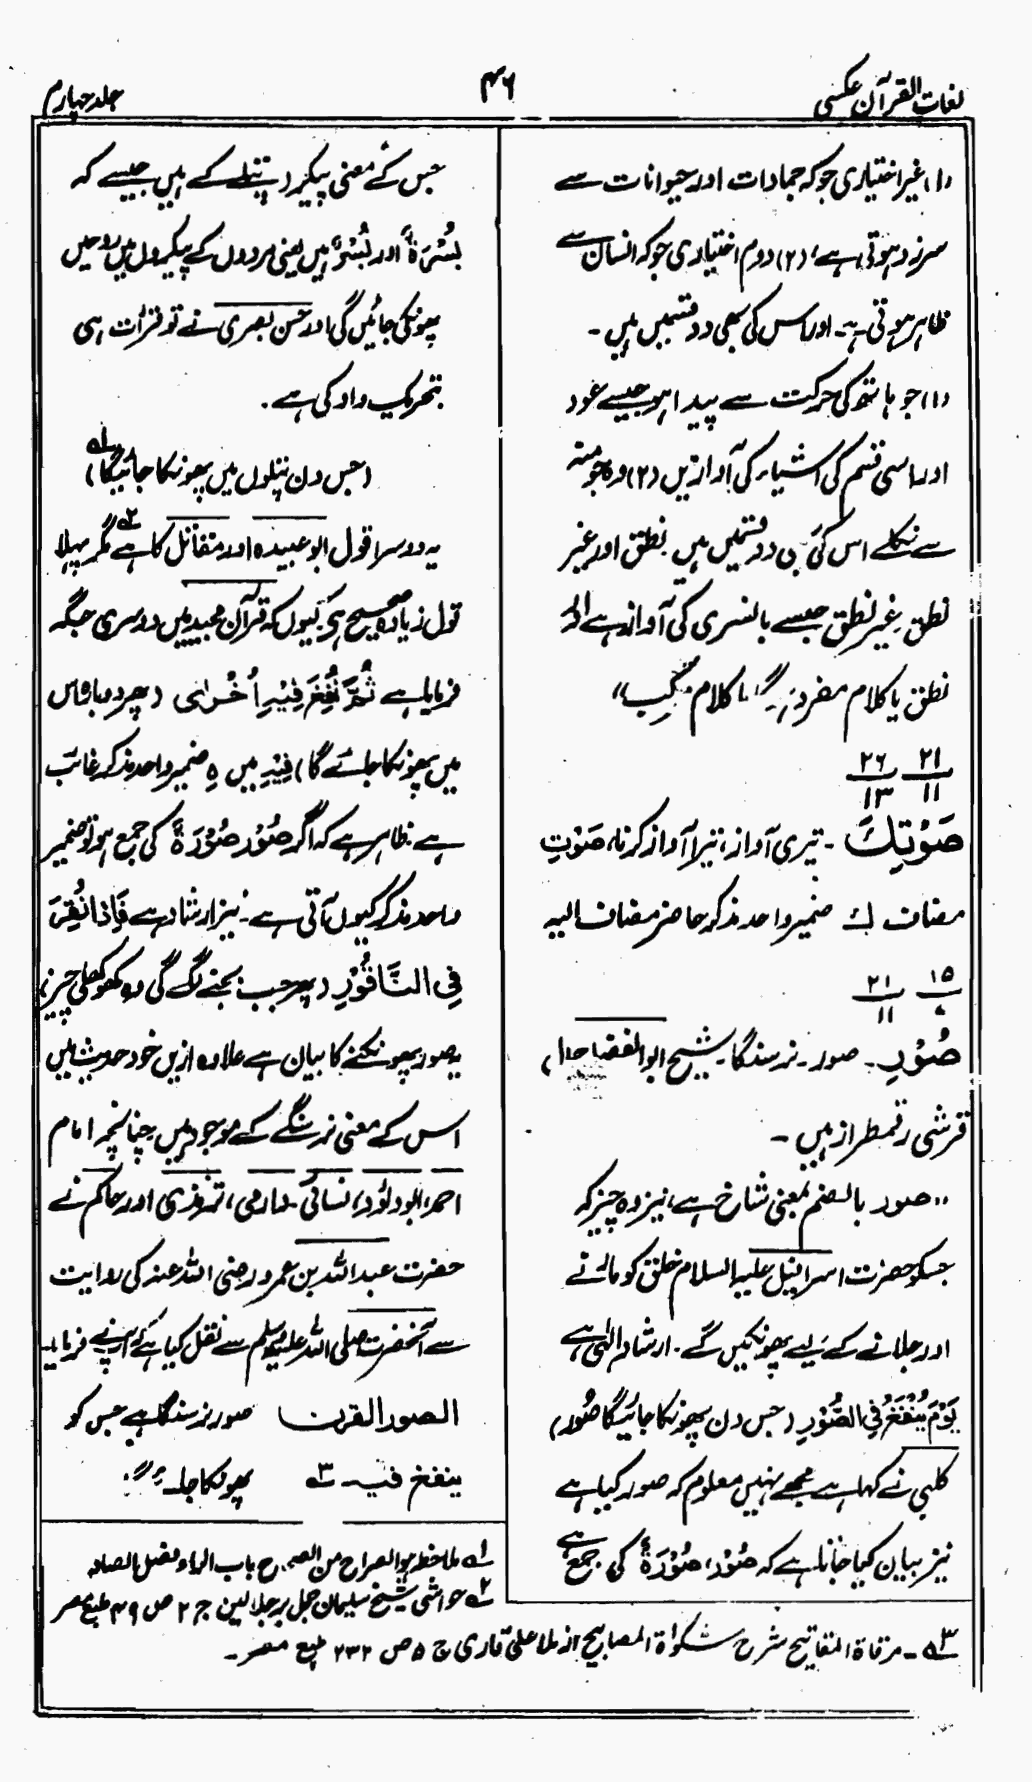 لغات القرآن عکسی
۴۶
جلد چہارم
(۱) غیر اختیاری جو کہ جمادات اور حیوانات سے
سرزد ہوتی ہے، (۲) دوم اختیاری جو کہ انسان سے
ظاہر ہوتی ہے۔ اور اس کی بھی دو قسمیں ہیں۔
(۱) جو ہاتھ کی حرکت سے پیدا ہو جیسے عود
اور اسی قسم کی اشیاء کی آوازیں (۲) وہ جو منہ
سے نکلے اس کی بھی دو قسمیں ہیں نطق اور غیر
نطق۔ غیر نطق جیسے بانسری کی آواز ہے اور
نطق یا کلام مفرد ہے یا کلام مرکب"
۲۱ ۲۶
۱۱ ۱۳
صَوْتِكَ ۔ تیری آواز، تیرا آواز کرنا، صَوْتِ
مضاف ك ضمیر واحد مذکر حاضر مضاف الیہ
۱۵ ۲۱
۷ ۱۱
صُوْرِ ۔ صور۔ نرسنگا۔ شیخ ابو الفضل
قرشی رقمطراز ہیں۔
"صور بالضم بمعنی شاخ ہے، نیز وہ چیز کہ
جسکو حضرت اسرافیل علیہ السلام خلق کو مارنے
اور جلانے کے لیے پھونکیں گے۔ ارشاد الٰہی ہے
یَوْمَ یُنْفَخُ فِی الصُّوْرِ (جس دن پھونکا جائیگا صُور)
کلبی نے کہا ہے مجھے نہیں معلوم کہ صور کیا ہے
نیز بیان کیا جاتا ہے کہ صُوْر، صُوْرَةٌ کی جمع ہے
جس کے معنی پیکر (پتلے کے ہیں جیسے کہ
بُسْرَةٌ اور بُسْرٌ ہیں یعنی مردوں کے پیکروں میں روحیں
پھونکی جائیں گی اور حسن بصری نے تو قرأت ہی
بتحریک واو کی ہے۔
(جس دن پتلوں میں پھونکا جائیگا) ۱ے
یہ دوسرا قول ابو عبیدہ اور مقاتل کا ہے ۲ے مگر پہلا
قول زیادہ صحیح ہے کیوں کہ قرآن مجید میں دوسری جگہ
فرمایا ہے ثُمَّ نُفِخَ فِیْهِ اُخْرٰی (پھر دوبارہ اس
میں پھونکا جائے گا) فِیْهِ میں ہِ ضمیر واحد مذکر غائب
ہے۔ ظاہر ہے کہ اگر صُوْر صُوْرَةٌ کی جمع ہو تو ضمیر
واحد مذکر کیوں آتی ہے۔ نیز ارشاد ہے فَاِذَا نُقِرَ
فِی النَّاقُوْرِ (پھر جب بجنے لگے گی وہ کھوکھلی چیز)
یہ صور پھونکنے کا بیان ہے علاوہ ازیں خود حدیث میں
اس کے معنی نرسنگے کے موجود ہیں چنانچہ امام
احمد، ابو داؤد، نسائی۔ دارمی، ترمذی اور حاکم نے
حضرت عبداللہ بن عمرو رضی اللہ عنہ کی روایت
سے آنحضرت صلی اللہ علیہ وسلم سے نقل کیا ہے کہ آپ نے فرمایا۔
الصور القرن صور نرسنگا ہے جس کو
ینفخ فیہ ۳ے پھونکا جا
۱ے ملاحظہ ہو الصراح من الصحاح باب الراء فصل الصاد
۲ے حواشی شیخ سلیمان جمل بر جلالین ج ۲ ص ۴۹ طبع مصر
۳ے ۔ مرقاۃ المفاتیح شرح مشکوٰۃ المصابیح از ملا علی قاری ج ۵ ص ۲۳۲ طبع مصر۔